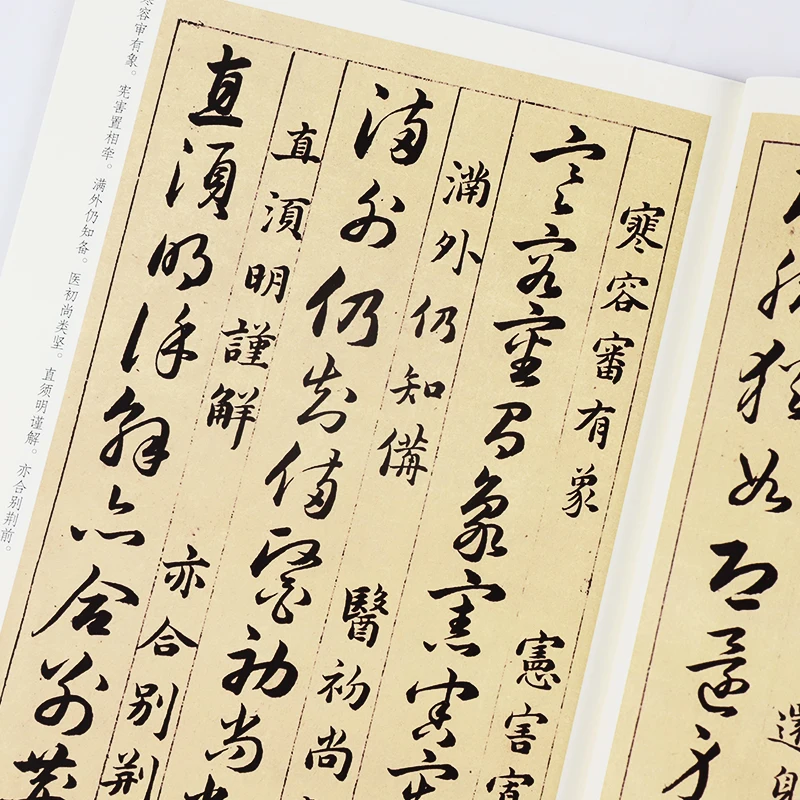 還身
寒容審有象 憲害
寒容審有象憲害
滿外仍知備 醫初尚
滿外仍知備醫初尚
直須明謹解 亦合別荆
直須明謹解亦合別荆
寒容审有象。宪害置相牵。满外仍知备。医初尚类坚。直须明谨解。亦合别荆前。